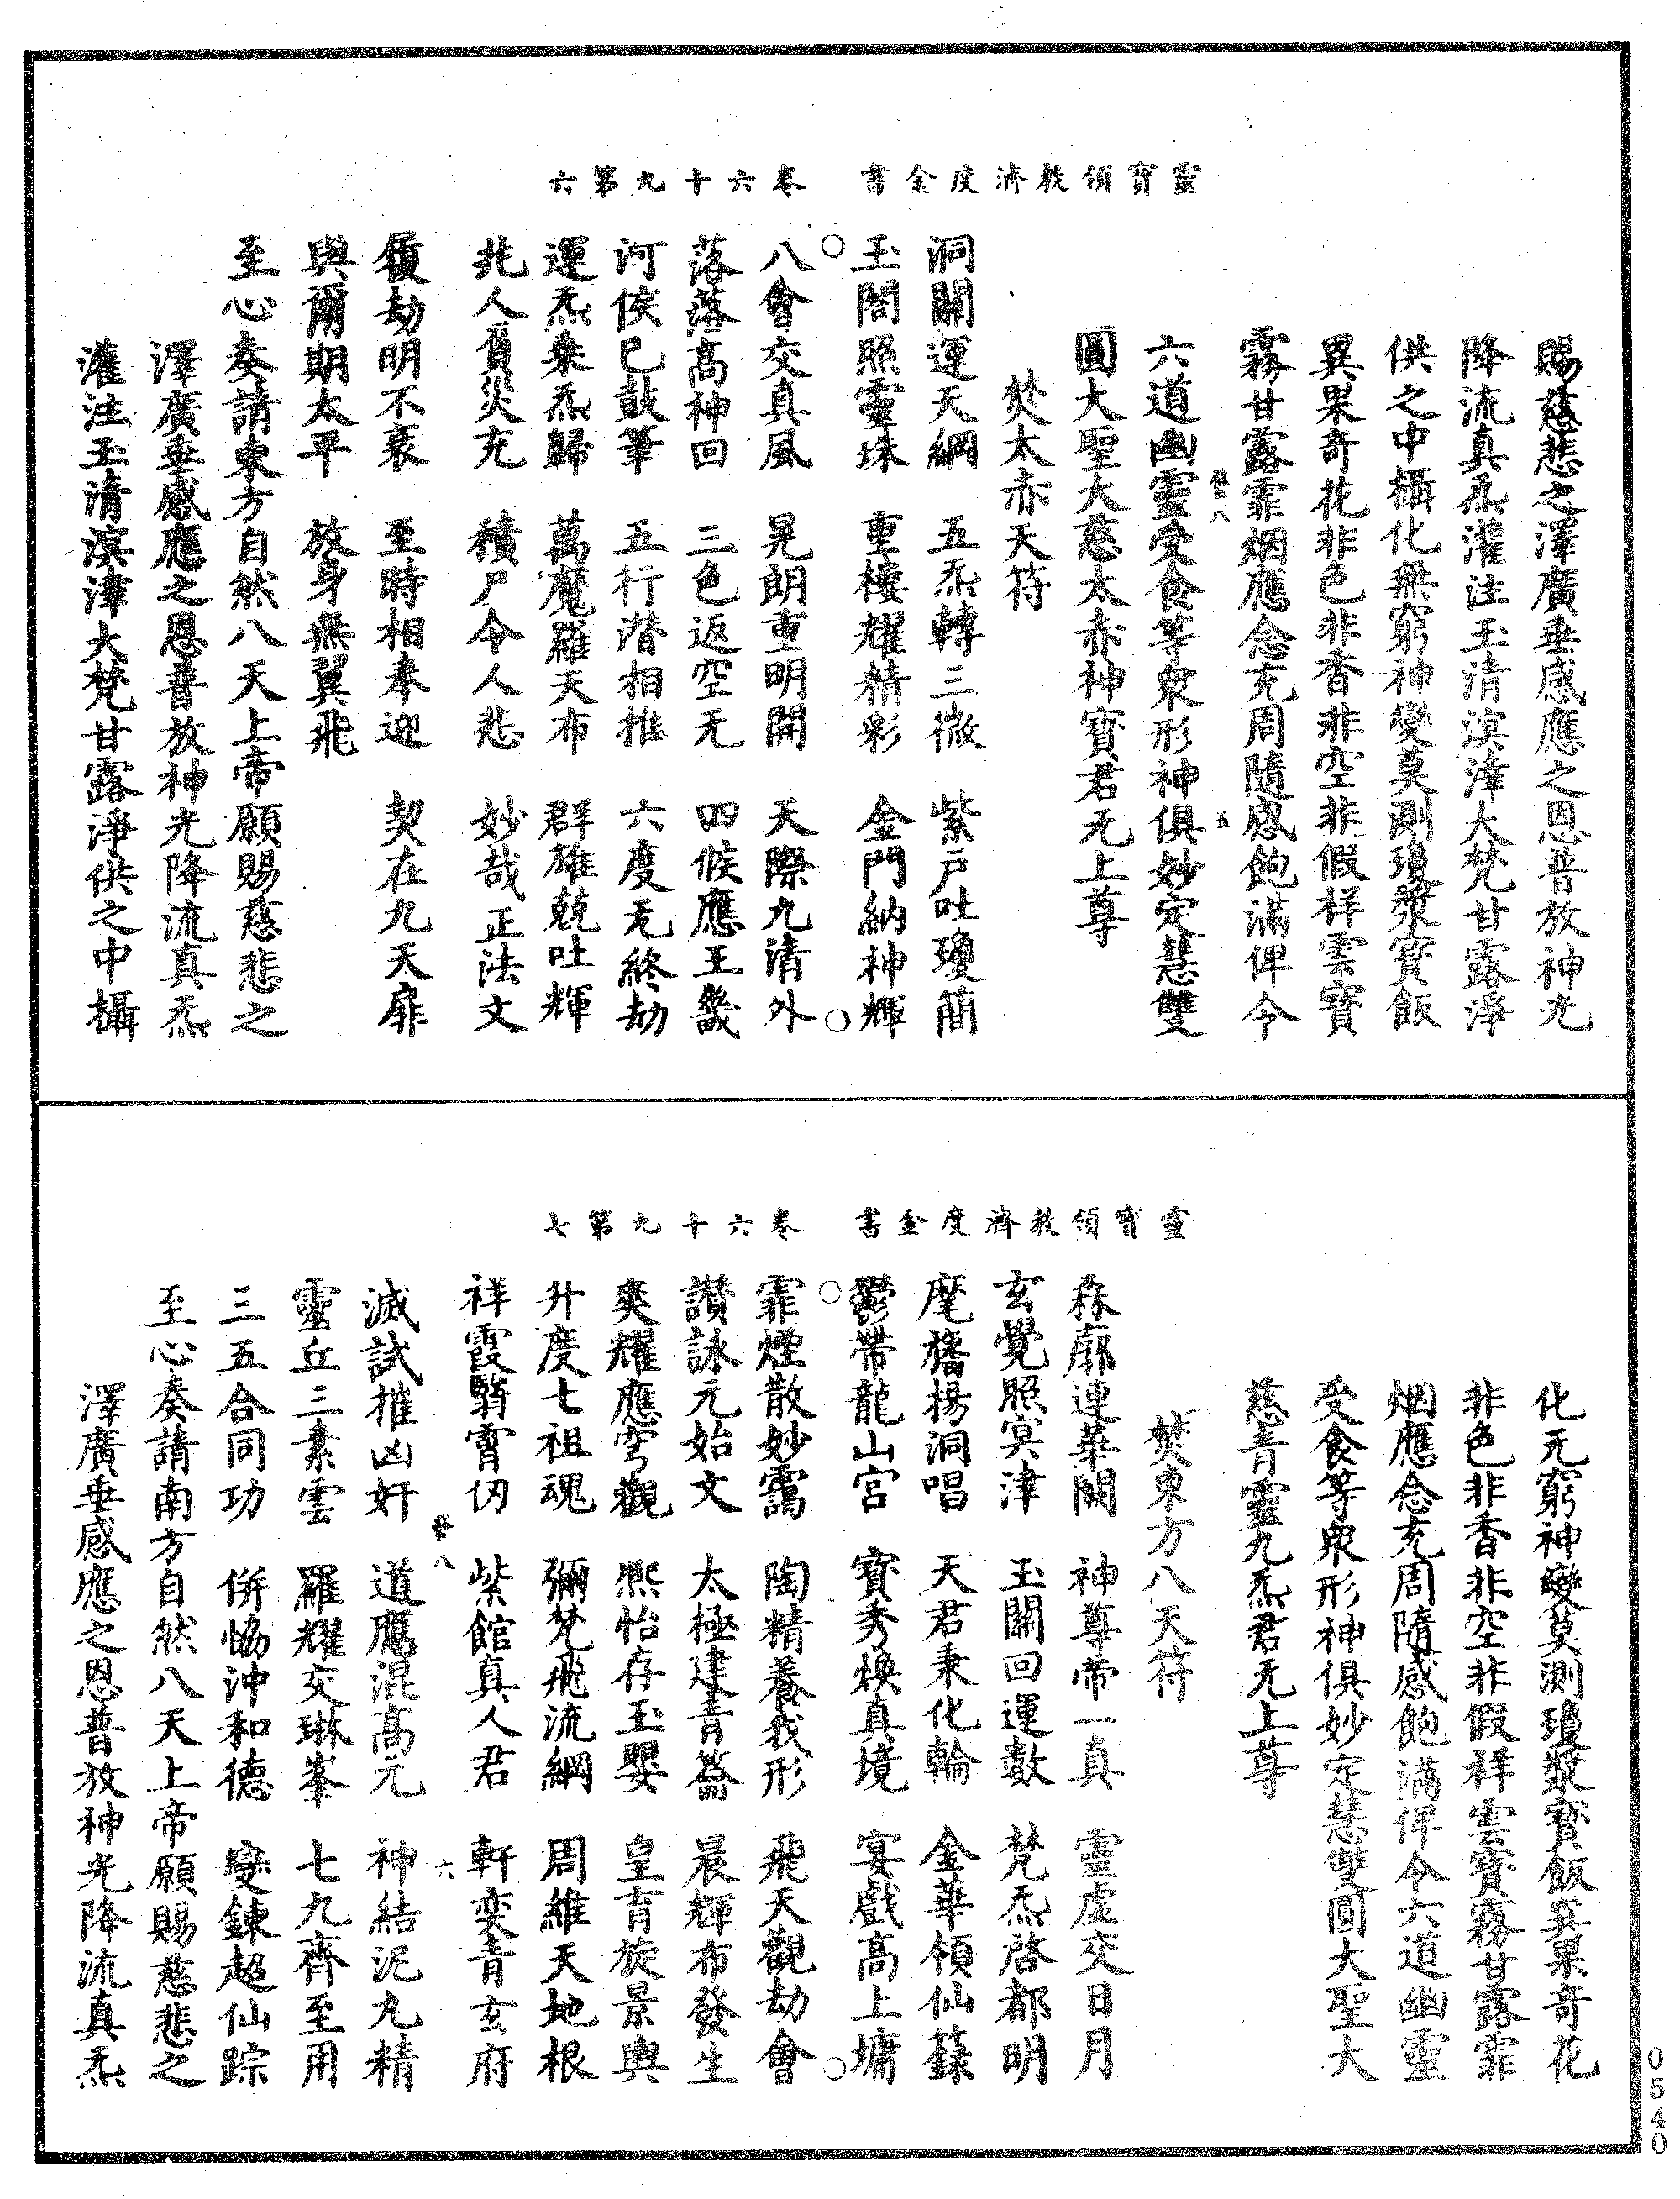 靈寶領教濟度金書　卷六十九第六
賜慈悲之澤廣垂感應之恩普放神光
降流真炁灌注玉清溟涬大梵甘露淨
供之中攝化無窮神變莫測瓊漿寶飯
異果奇花非色非香非空非假祥雲寶
霧甘露霏烟應念充周隨感飽滿俾令
六道幽靈受食等衆形神俱妙定慧雙
圓大聖大慈太赤神寶君无上尊
焚太赤天符
洞關運天綱　五炁轉三微　紫戶吐瓊蕳
玉閤照靈珠　重樓耀精彩　金門納神輝
八會交真風　晃朗重明開　天際九清外
落落高神回　三色返空无　四候應王畿
河侯已鼓筆　五行潜相推　六度无終劫
運炁乗炁歸　萬魔羅天布　群雄兢吐輝
兆人負災充　積尸令人悲　妙哉正法文
履劫明不衰　至時相奉迎　契在九天扉
與爾期太平　放身無翼飛
至心奏請東方自然八天上帝願賜慈悲之
澤廣垂感應之恩普放神光降流真炁
灌注玉清溟涬大梵甘露淨供之中攝
靈寶領教濟度金書　卷六十九第七
化无窮神變莫測瓊漿寶飯異果奇花
非色非香非空非假祥雲寶霧甘露霏
烟應念充周隨感飽滿俾令六道幽靈
受食等衆形神俱妙定慧雙圓大聖大
慈青靈九炁君无上尊
焚東方八天符
森廓連華闕　神尊帝一真　靈虛交日月
玄覺照冥津　玉關回運數　梵炁啓都明
麾旛揚洞唱　天君秉化輪　金華領仙籙
鬱帶龍山宮　寶秀煥真境　宴戲高上墉
霏煙散妙靄　陶精養我形　飛天觀劫會
讃詠元始文　太極建青籥　晨輝布發生
奕耀應穹觀　熙怡存玉嬰　皇育旋景與
升度七祖魂　彌梵飛流綱　周維天地根
祥霞翳霄仞　紫館真人君　軒奕青玄府
滅試摧凶奸　道應混高元　神結泥丸精
靈丘三素雲　羅耀交琳峯　七九齊至用
三五合同功　併恊沖和德　變鍊超仙踪
至心奏請南方自然八天上帝願賜慈悲之
澤廣垂感應之恩普放神光降流真炁
0540